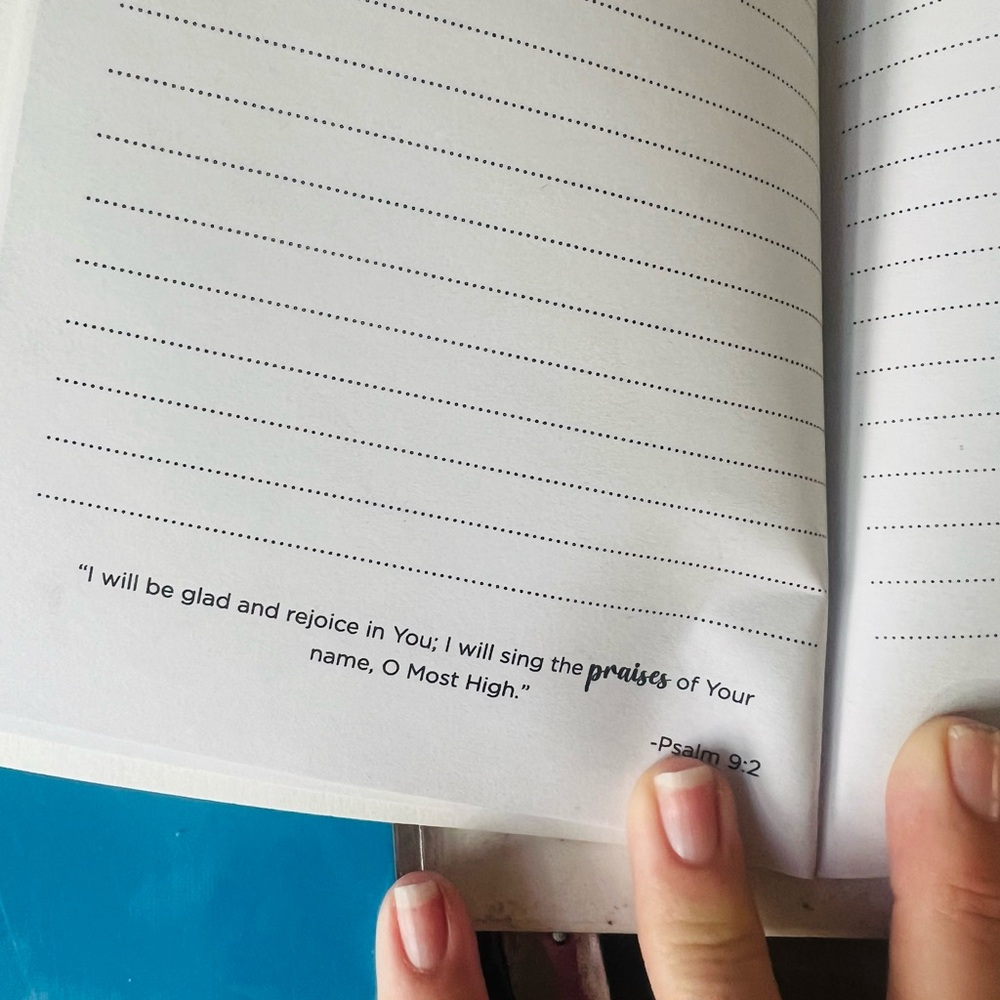 “I will be glad and rejoice in You; I will sing the praises of Your
name, O Most High.”
-Psalm 9:2